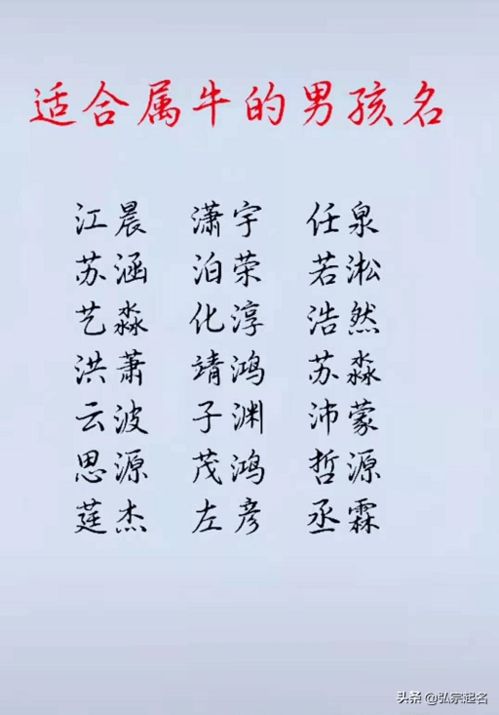 适合属牛的男孩名
江晨 潇宇 任泉
苏涵 泊荣 若淞
艺淼 化淳 浩然
洪萧 靖鸿 苏淼
云波 子渊 沛蒙
思源 茂鸿 哲源
莛杰 左彦 丞霖
头条 @弘宗起名